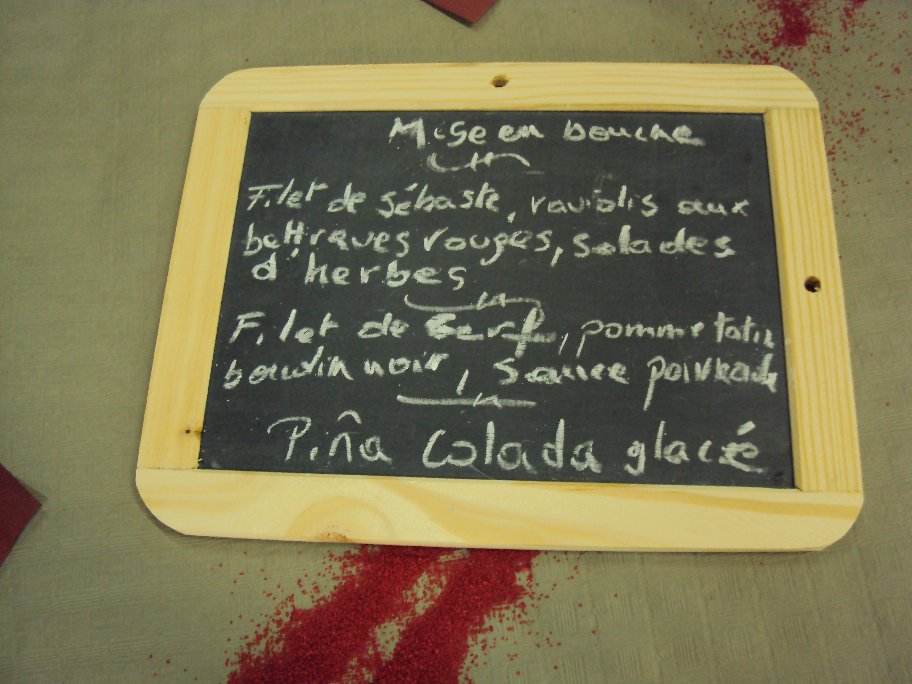 Mise en bouche
Filet de sébaste, raviolis aux
bettraves rouges, salades
d'herbes
Filet de Cerf, pomme tatin
boudin noir, sauce poivrade
Piña Colada glacée